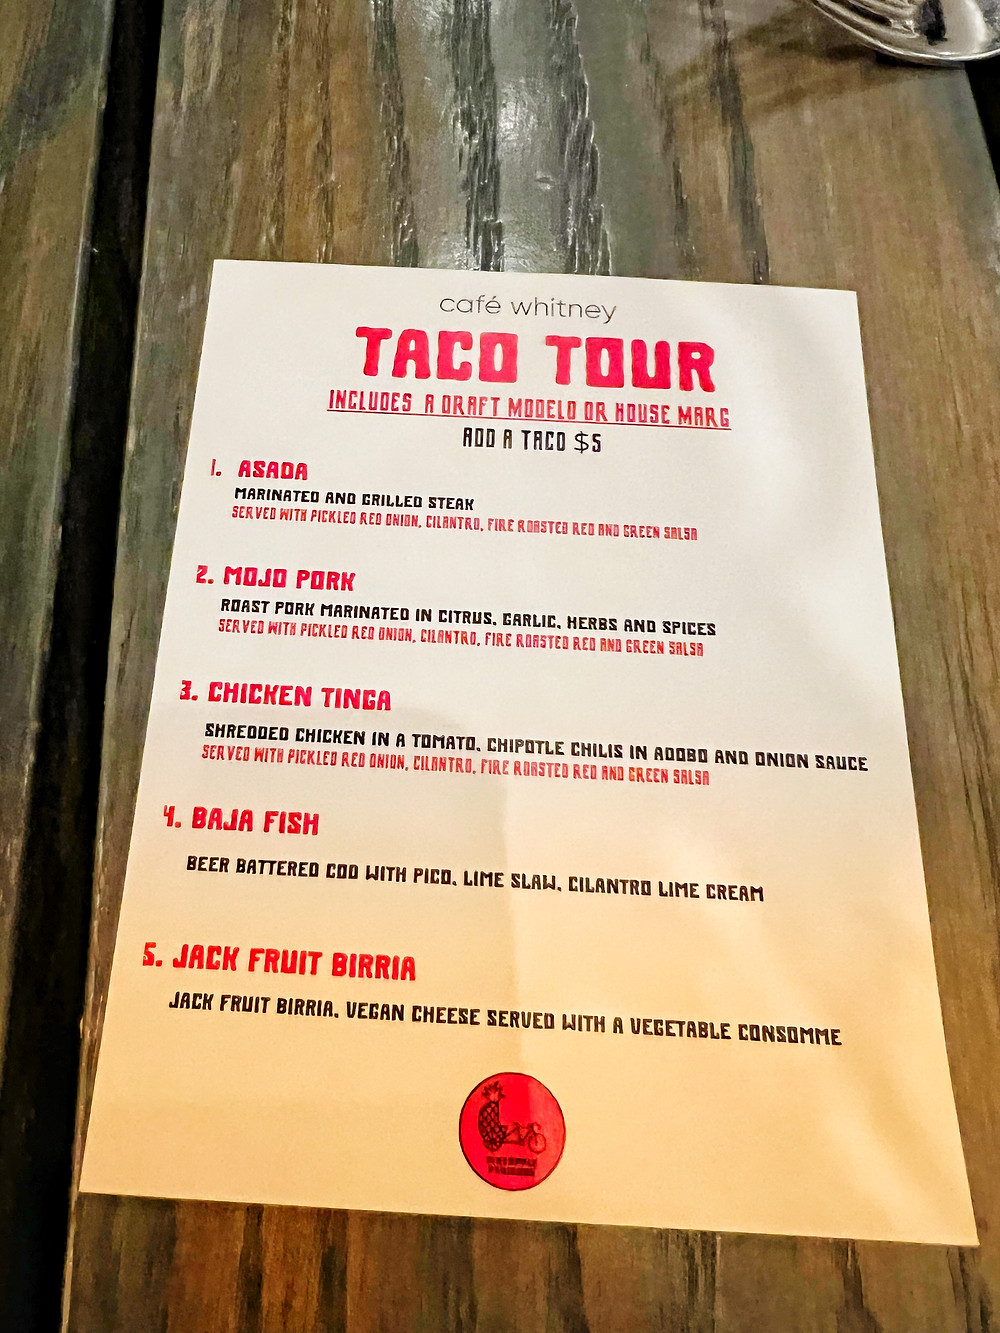 café whitney
TACO TOUR
INCLUDES A DRAFT MODELO OR HOUSE MARG
ADD A TACO $5
1. ASADA
MARINATED AND GRILLED STEAK
SERVED WITH PICKLED RED ONION, CILANTRO, FIRE ROASTED RED AND GREEN SALSA
2. MOJO PORK
ROAST PORK MARINATED IN CITRUS, GARLIC, HERBS AND SPICES
SERVED WITH PICKLED RED ONION, CILANTRO, FIRE ROASTED RED AND GREEN SALSA
3. CHICKEN TINGA
SHREDDED CHICKEN IN A TOMATO, CHIPOTLE CHILIS IN ADOBO AND ONION SAUCE
SERVED WITH PICKLED RED ONION, CILANTRO, FIRE ROASTED RED AND GREEN SALSA
4. BAJA FISH
BEER BATTERED COD WITH PICO, LIME SLAW, CILANTRO LIME CREAM
5. JACK FRUIT BIRRIA
JACK FRUIT BIRRIA, VEGAN CHEESE SERVED WITH A VEGETABLE CONSOMME